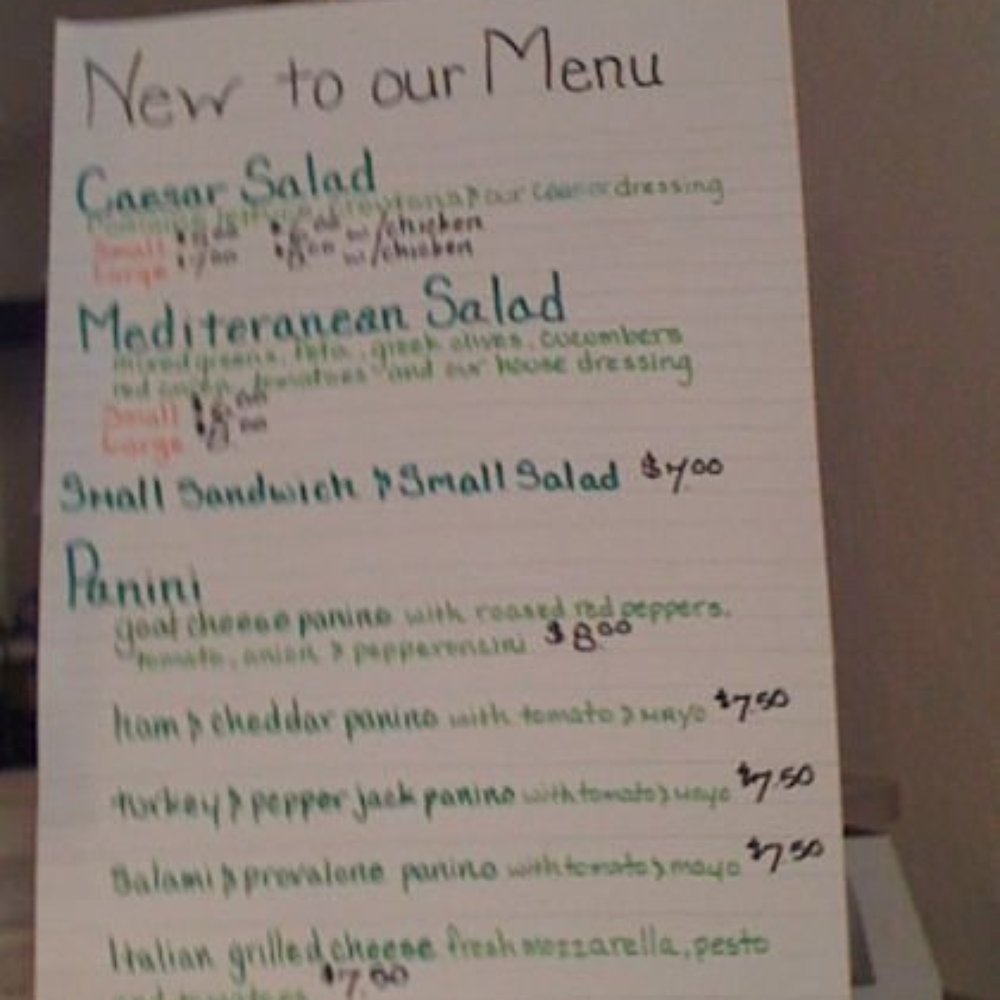 New to our Menu
Caesar Salad
romaine lettuce, croutons & our caesar dressing
Small $6.00 w/chicken
Large $7.00 $8.00 w/chicken
Mediteranean Salad
mixed greens, feta, greek olives, cucumbers
red onion, tomatoes and our house dressing
Small
Large
Small Sandwich & Small Salad $7.00
Panini
goat cheese panino with roased red peppers,
tomato, onion & pepperoncini $8.00
ham & cheddar panino with tomato & mayo $7.50
turkey & pepper jack panino with tomato & mayo $7.50
Salami & provalone panino with tomato & mayo $7.50
Italian grilled cheese fresh mozzarella, pesto
and tomatoes